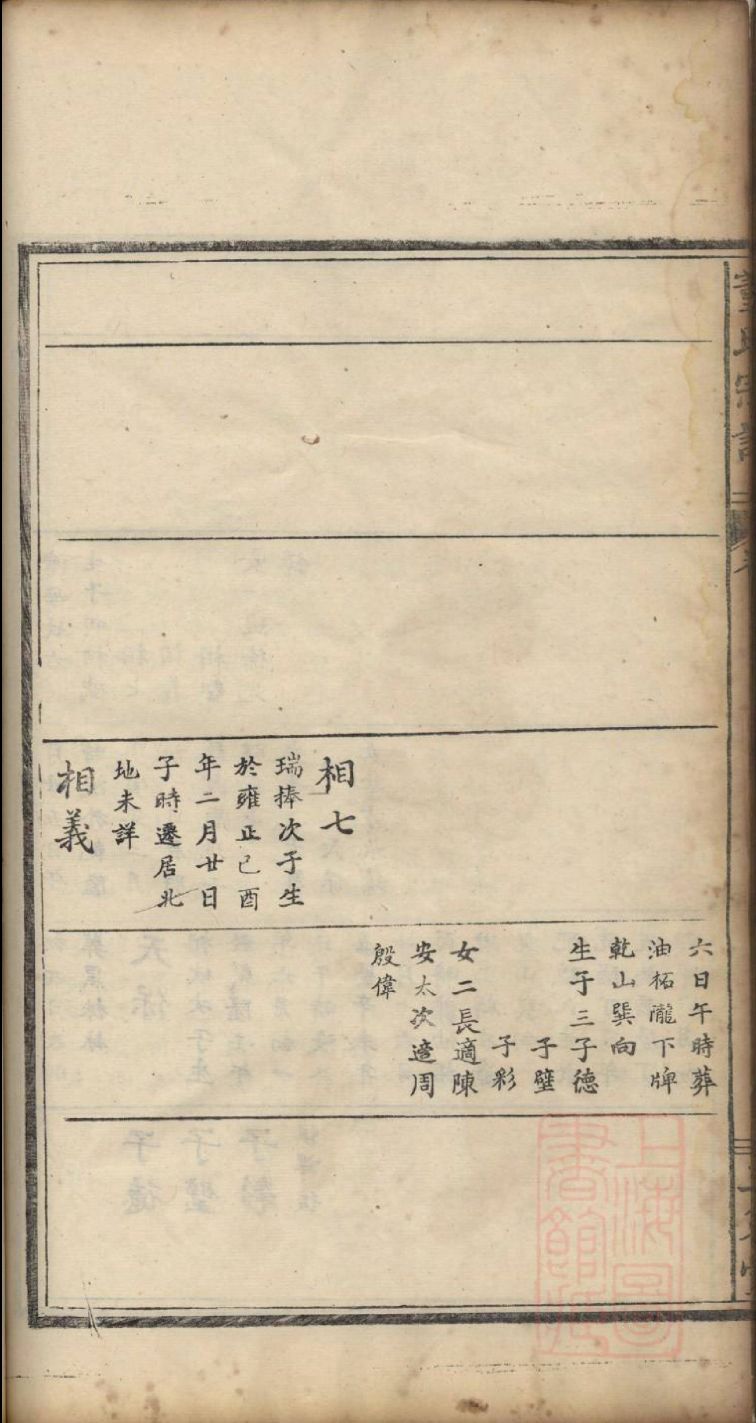 相七
瑞捧次子生
於雍正己酉
年二月廿日
子時遷居北
地未詳
相義
六日午時葬
油柘隴下牌
乾山巽向
生子三子德
子璧
子彩
女二長適陳
安太次適周
殷偉
上海圖
書館藏